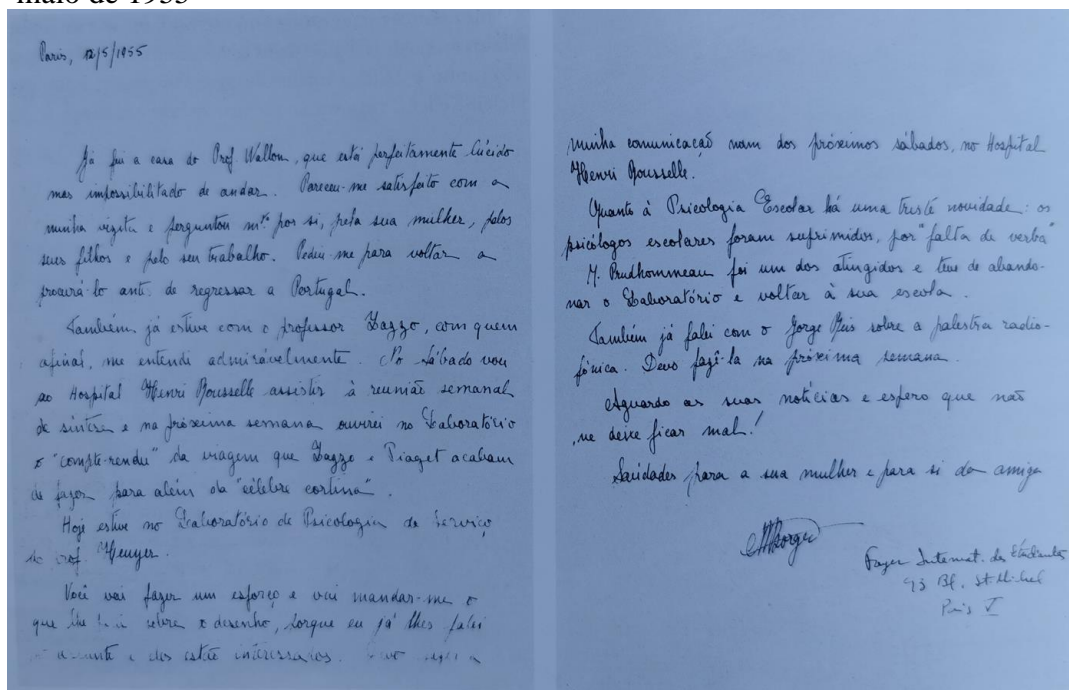 maio de 1955
Paris, 12/5/1955
Já fui a casa do Prof. Wallon, que está perfeitamente lúcido
mas impossibilitado de andar. Pareceu-me satisfeito com a
minha visita e perguntou mto. por si, pela sua mulher, pelos
seus filhos e pelo seu trabalho. Pediu-me para voltar a
procurá-lo ants de regressar a Portugal.
Também já estive com o professor Zazzo, com quem
afinal, me entendi admiràvelmente. No sábado vou
ao Hospital Henri Rousselle assistir à reunião semanal
de síntese e na próxima semana ouvirei no Laboratório
o "compte-rendu" da viagem que Zazzo e Piaget acabam
de fazer para além da "célebre cortina".
Hoje estive no Laboratório de Psicologia do Serviço
do Prof. Heuyer.
Você vai fazer um esforço e vai mandar-me o
que lhe sobre o desenho, porque eu já lhes falei
assunto e eles estão interessados.
minha comunicação num dos próximos sábados, no Hospital
Henri Rousselle.
Quanto à Psicologia Escolar há uma triste novidade: os
psicólogos escolares foram suprimidos, por "falta de verba"
M. Prudhommeau foi um dos atingidos e teve de abando-
nar o Laboratório e voltar à sua escola.
Também já falei com o Jorge Reis sobre a palestra radio-
fónica. Devo fazê-la na próxima semana.
Aguardo as suas notícias e espero que não
me deixe ficar mal!
Saúdades para a sua mulher e para si da amiga
MBorges
Foyer Internat. des Étudiantes
93 Bl. St Michel
Paris V